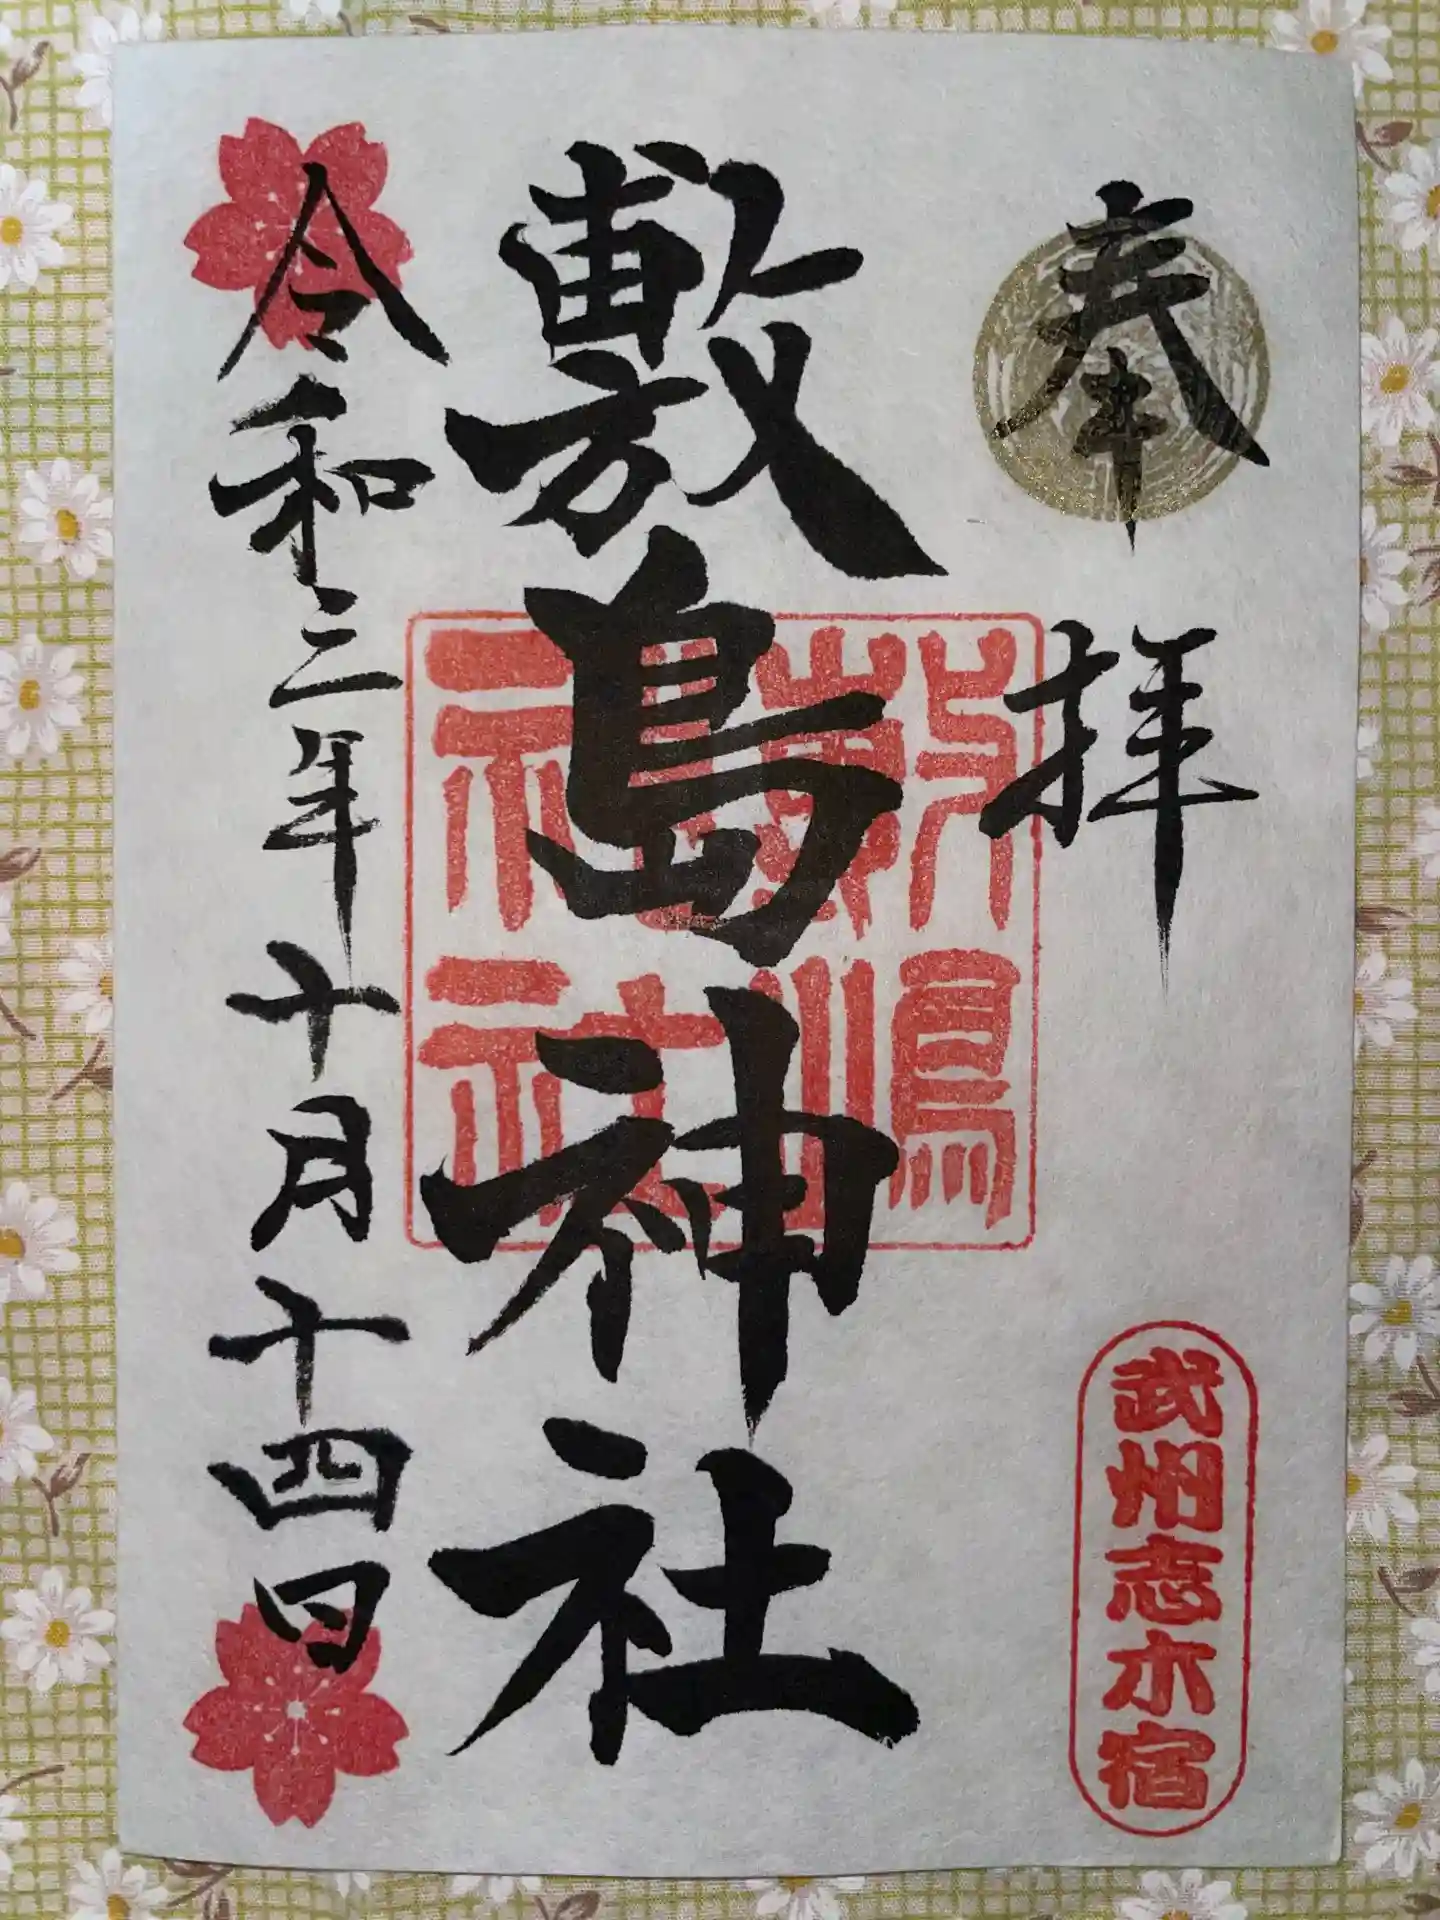 奉拝
武州志木宿
敷島神社
敷嶋神社
令和三年十月十四日